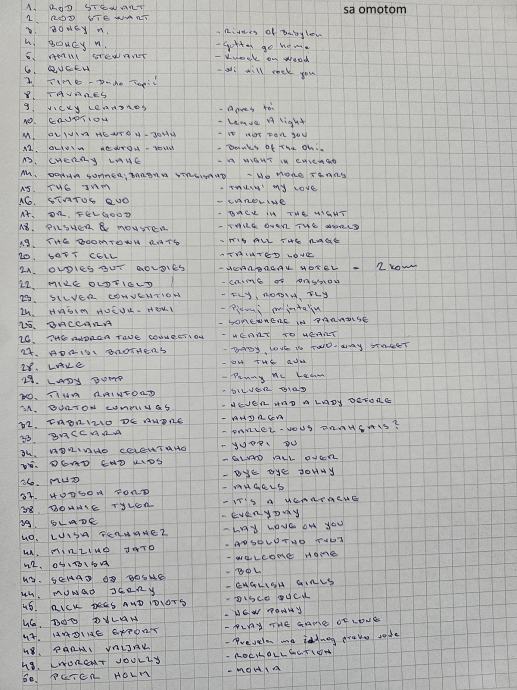 sa omotom
1. ROD STEWART
2. ROD STEWART
3. BONEY M. - Rivers of Babylon
4. BONEY M. - Gotta go home
5. AMII STEWART - Knock on wood
6. QUEEN - We will rock you
7. TIME - Dado Topić
8. TAVARES
9. VICKY LEANDROS - Apres toi
10. ERUPTION - Leave A light
11. OLIVIA NEWTON-JOHN - IF NOT FOR YOU
12. OLIVIA NEWTON-JOHN - Banks of the Ohio
13. CHERRY LANE - A NIGHT IN CHICAGO
14. DONNA SUMMER, BARBRA STREISAND - NO MORE TEARS
15. THE JAM - TAKIN' MY LOVE
16. STATUS QUO - CAROLINE
17. DR. FELGOOD - BACK IN THE NIGHT
18. PILSNER & MONSTER - TAKE OVER THE WORLD
19. THE BOOMTOWN RATS - IT'S ALL THE RAGE
20. SOFT CELL - TAINTED LOVE
21. OLDIES BUT GOLDIES - HEARBREAK HOTEL - 2 kom
22. MIKE OLDFIELD - CRIME OF PASSION
23. SILVER CONVENTION - FLY, ROBIN, FLY
24. HAŠIM KUČUK-HOKI
25. BACCARA - SOMEWHERE IN PARADISE
26. THE ANDREA TRUE CONNECTION - HEART TO HEART
27. ADRISI BROTHERS - BABY, LOVE IS TWO-WAY STREET
28. LAKE - ON THE RUN
29. LADY BUMP - Penny Mc Lean
30. TINA RAINFORD - SILVER BIRD
31. BURTON CUMMINGS - NEVER HAD A LADY BEFORE
32. FABRIZIO DE ANDRE - ANDREA
33. BACCARA - PARLEZ-VOUS FRANÇAIS?
34. ADRIANO CELENTANO - YUPPI DU
35. DEAD END KIDS - GLAD ALL OVER
36. MUD - BYE BYE JOHNY
37. HUDSON FORD - ANGELS
38. BONNIE TYLER - IT'S A HEARTACHE
39. SLADE - EVERYDAY
40. LUISA FERNANEZ - LAY LOVE ON YOU
41. MIRZINO JATO - APSOLUTNO TVOJ
42. OSIBISA - WELCOME HOME
43. SENAD OD BOSNE - BOL
44. MUNGO JERRY - ENGLISH GIRLS
45. RICK DEES AND IDIOTS - DISCO DUCK
46. BOB DYLAN - NEW PONNY
47. NADINE EXPERT - PLAY THE GAME OF LOVE
48. PARNI VALJAK - Prevela me žednog preko vode
49. LAURENT VOULZY - ROCKOLLECTION
50. PETER HOLM - MONIA